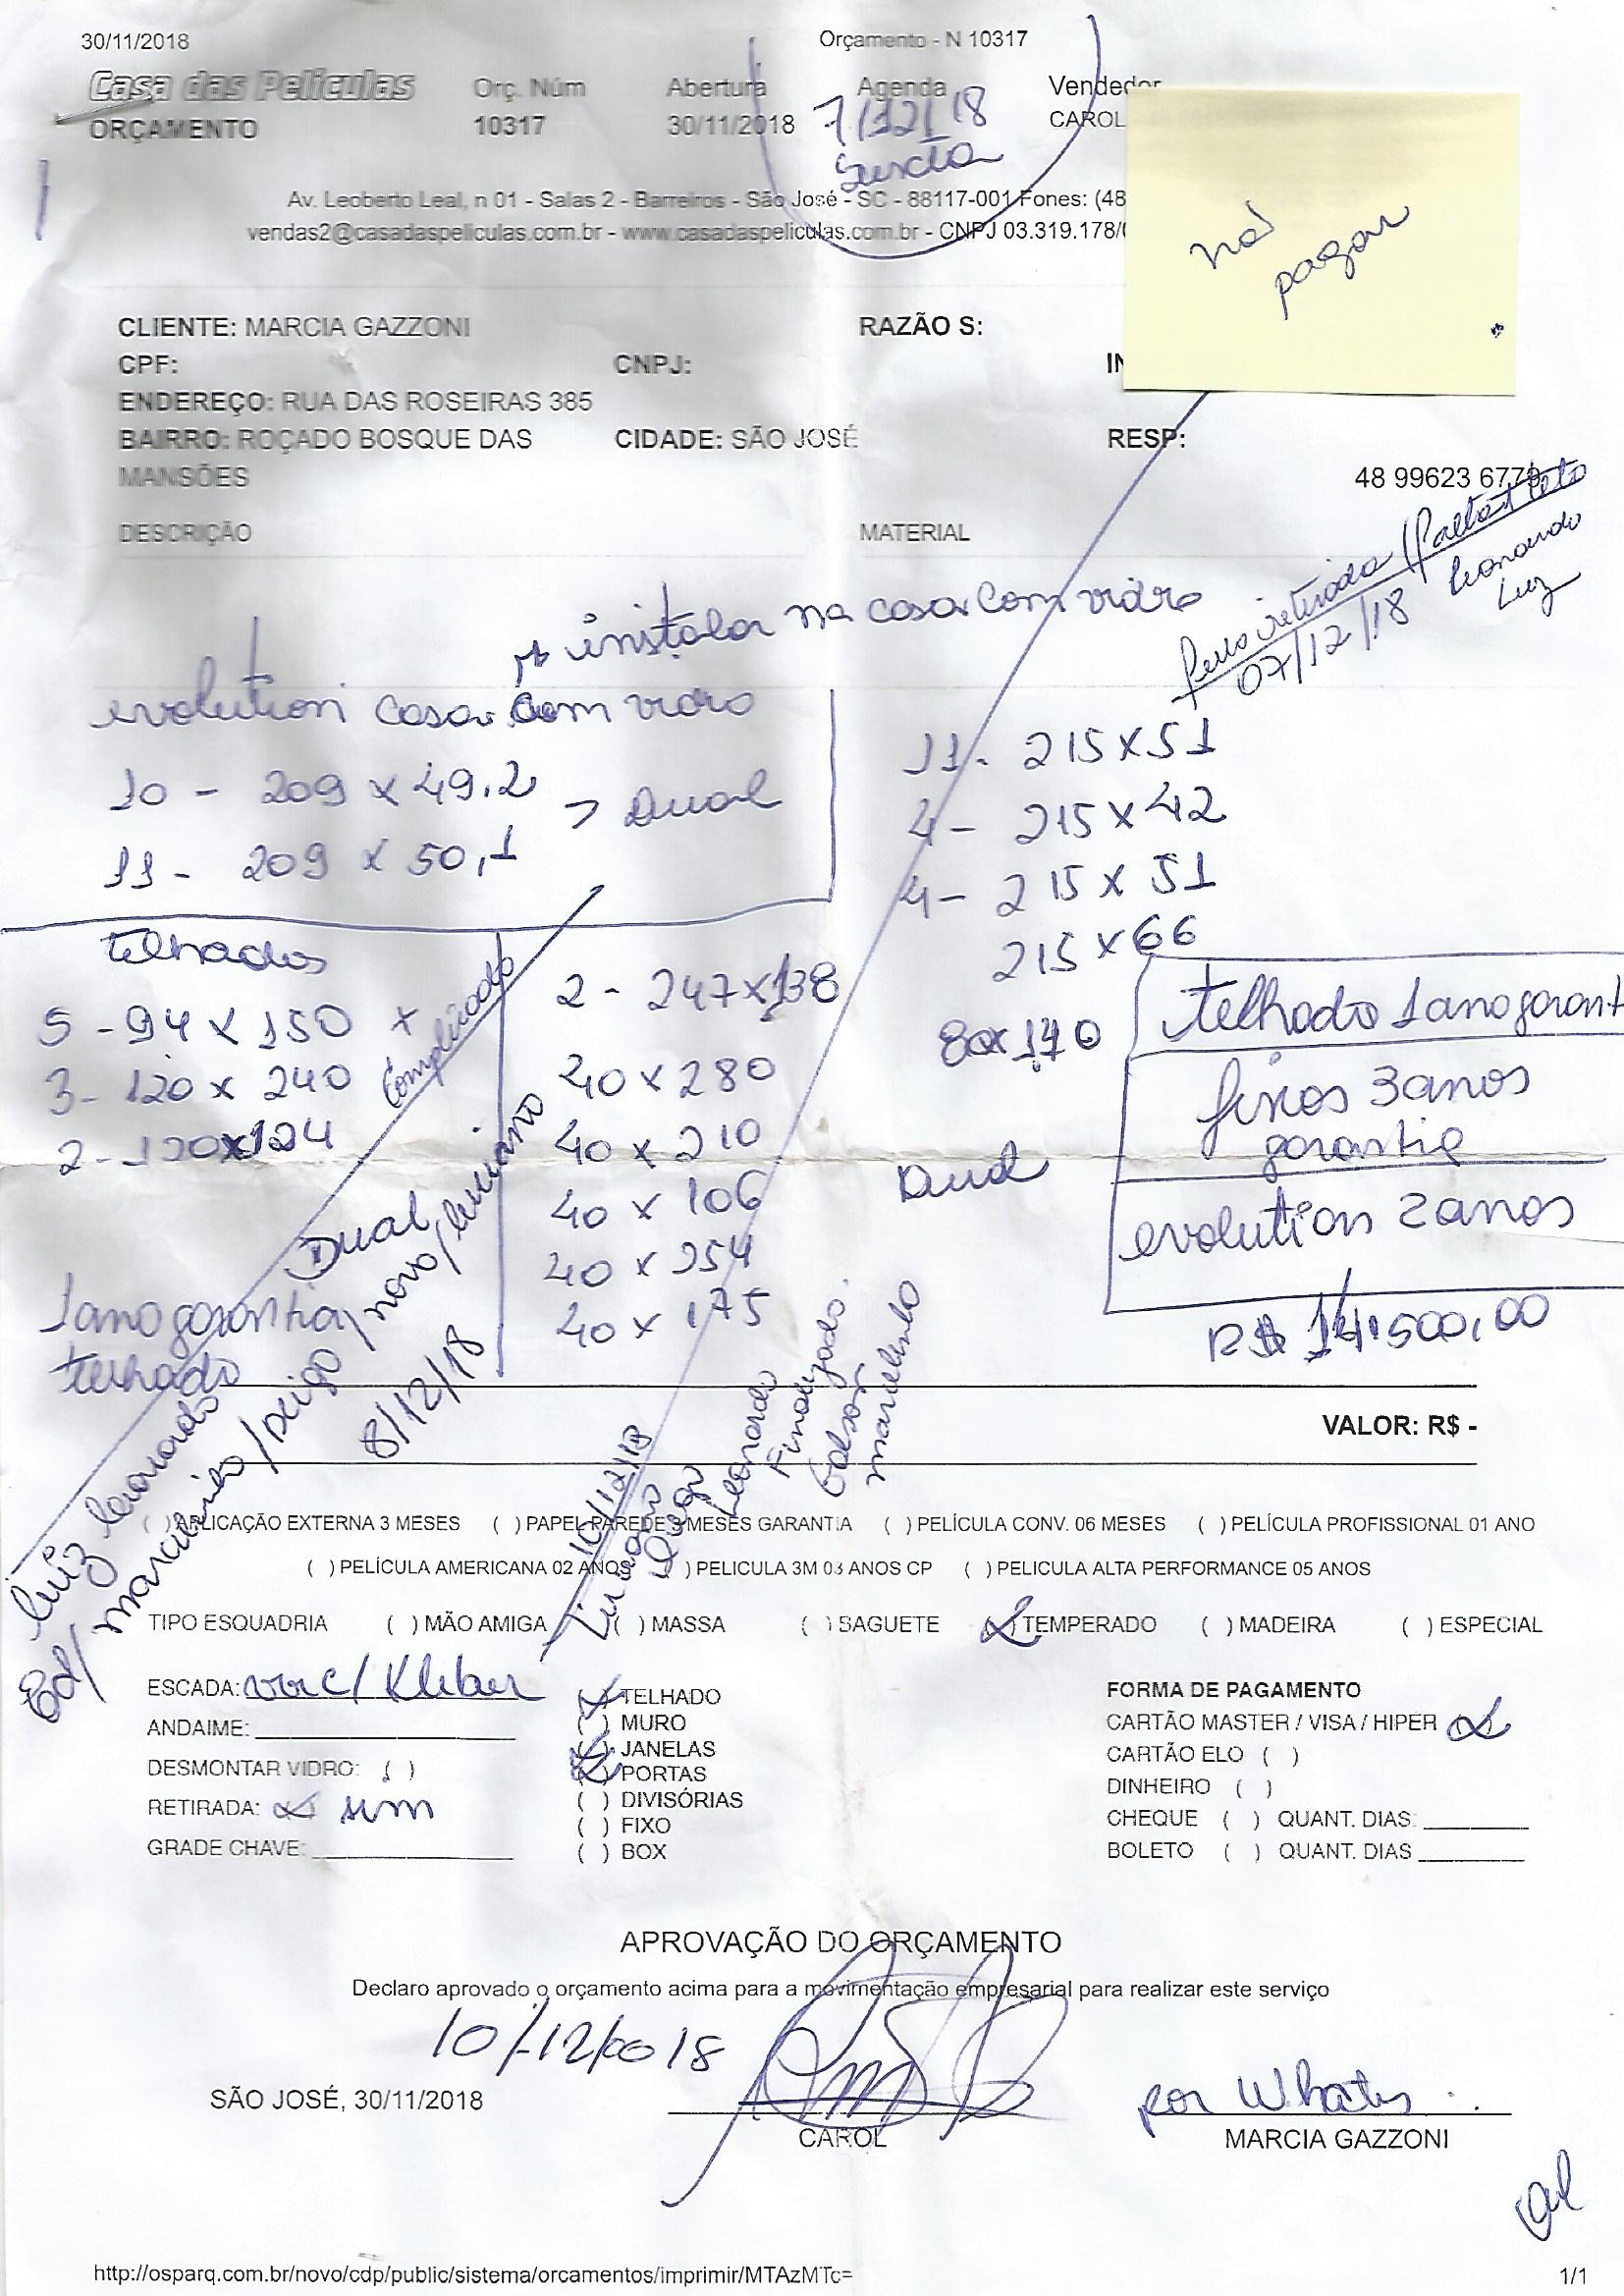 30/11/2018 Orçamento - N 10317
Casa das Películas Orç. Núm Abertura Agenda Vendedor
ORÇAMENTO 10317 30/11/2018 7/12/18 CAROL
Sexta
Av. Leoberto Leal, n 01 - Salas 2 - Barreiros - São José - SC - 88117-001 Fones: (48
vendas2@casadaspeliculas.com.br - www.casadaspeliculas.com.br - CNPJ 03.319.178/
não
pagar
CLIENTE: MARCIA GAZZONI RAZÃO S:
CPF: CNPJ: IN
ENDEREÇO: RUA DAS ROSEIRAS 385
BAIRRO: ROÇADO BOSQUE DAS CIDADE: SÃO JOSÉ RESP:
MANSÕES 48 99623 6779
DESCRIÇÃO MATERIAL
retirada / falta teto
07/12/18 Leonardo
Luiz
instalar na casa com vidro
evolution casa com vidro
10 - 209 x 49,2 > Dual
11 - 209 x 50,1
11 - 215 x 51
4 - 215 x 42
4 - 215 x 51
215 x 66
80 x 170
telhados
5 - 94 x 150 x
3 - 120 x 240
2 - 120 x 124
Complicado
2 - 247 x 138
40 x 280
40 x 210
40 x 106
40 x 254
40 x 175
Dual
telhado 1 ano garant
fixos 3 anos
garantia
evolution 2 anos
R$ 14.500,00
Dual
1 ano garantia
telhado
Luiz Leonardo
novo / Luciano
8/12/18
10/12/18
Leonardo
Finalizado
Marcelinho
VALOR: R$ -
( ) APLICAÇÃO EXTERNA 3 MESES ( ) PAPEL PAREDE 3 MESES GARANTIA ( ) PELÍCULA CONV. 06 MESES ( ) PELÍCULA PROFISSIONAL 01 ANO
( ) PELÍCULA AMERICANA 02 ANOS ( ) PELICULA 3M 03 ANOS CP ( ) PELICULA ALTA PERFORMANCE 05 ANOS
TIPO ESQUADRIA ( ) MÃO AMIGA ( ) MASSA ( ) BAGUETE (x) TEMPERADO ( ) MADEIRA ( ) ESPECIAL
ESCADA: c/ Kleber
ANDAIME:
DESMONTAR VIDRO: ( )
RETIRADA: x sim
GRADE CHAVE:
(x) TELHADO
( ) MURO
(x) JANELAS
(x) PORTAS
( ) DIVISÓRIAS
( ) FIXO
( ) BOX
FORMA DE PAGAMENTO
CARTÃO MASTER / VISA / HIPER x
CARTÃO ELO ( )
DINHEIRO ( )
CHEQUE ( ) QUANT. DIAS:
BOLETO ( ) QUANT. DIAS
APROVAÇÃO DO ORÇAMENTO
Declaro aprovado o orçamento acima para a movimentação empresarial para realizar este serviço
10/12/2018
SÃO JOSÉ, 30/11/2018
CAROL
por Whats
MARCIA GAZZONI
http://osparq.com.br/novo/cdp/public/sistema/orcamentos/imprimir/MTAzMTc= 1/1